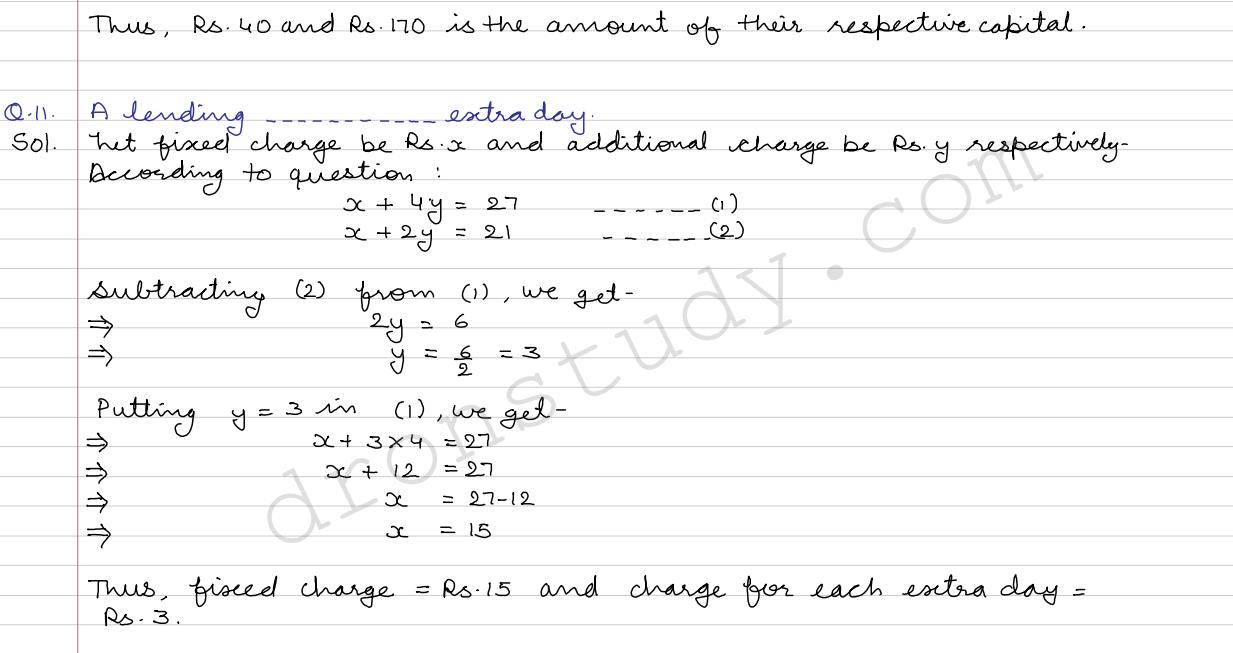 Thus, Rs. 40 and Rs. 170 is the amount of their respective capital.
Q.11. A lending ----------- extra day.
Sol. Let fixed charge be Rs. x and additional charge be Rs. y respectively-
According to question :
x + 4y = 27 ------ (1)
x + 2y = 21 ------ (2)
Subtracting (2) from (1), we get-
⇒ 2y = 6
⇒ y = 6/2 = 3
Putting y = 3 in (1), we get-
⇒ x + 3×4 = 27
⇒ x + 12 = 27
⇒ x = 27-12
⇒ x = 15
Thus, fixed charge = Rs. 15 and charge for each extra day =
Rs. 3.
dronstudy.com